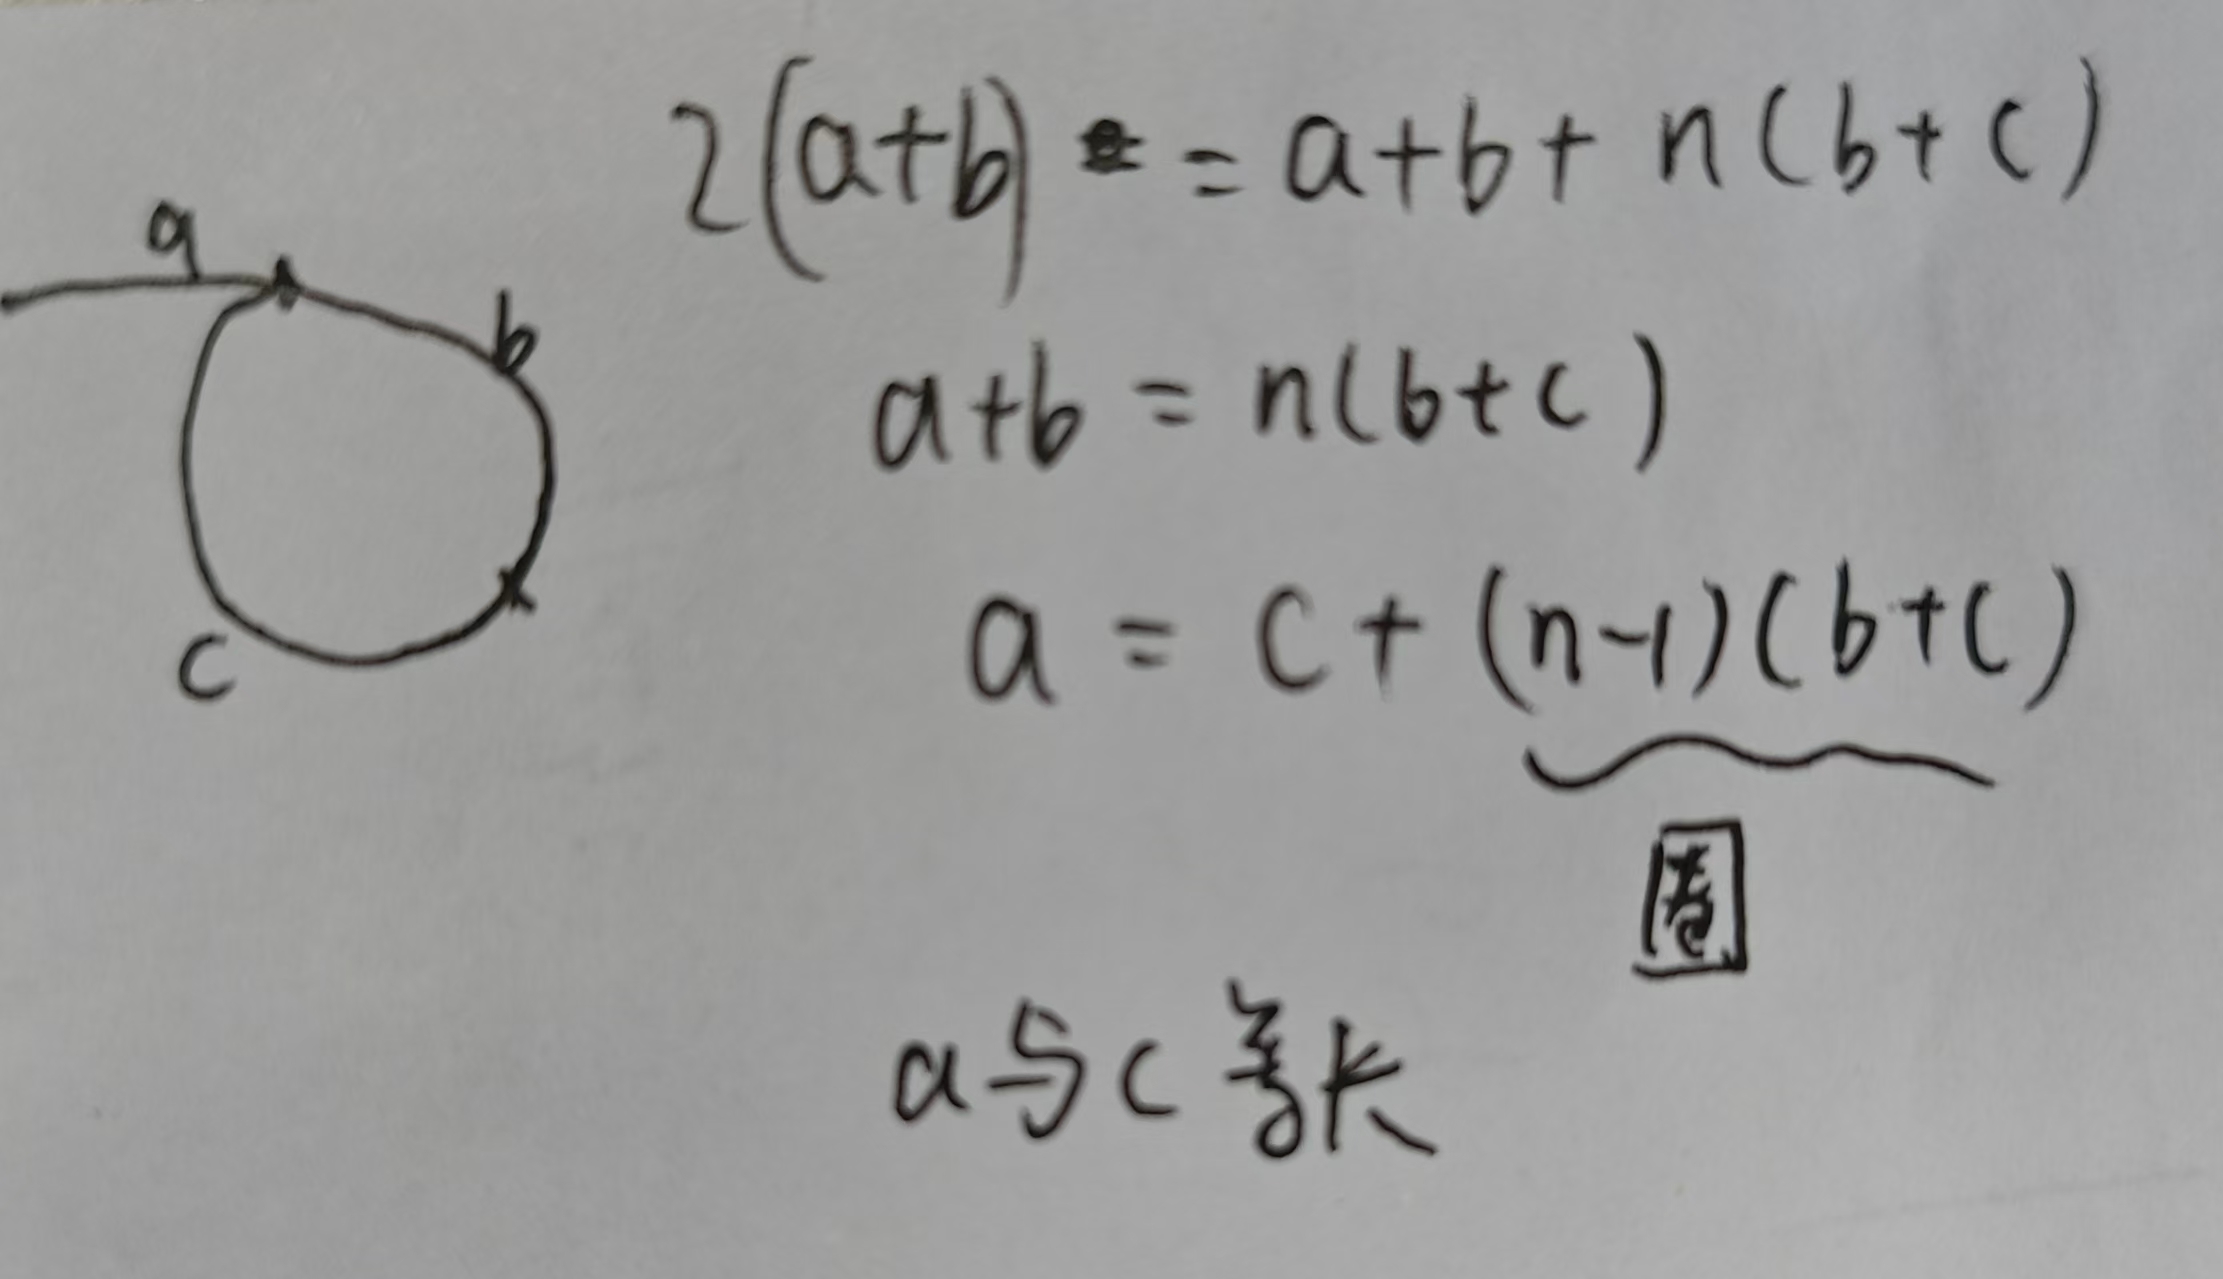 2(a+b) = a+b+n(b+c)
a
b
a+b = n(b+c)
a = c+(n-1)(b+c)
c
圈
a与c等长